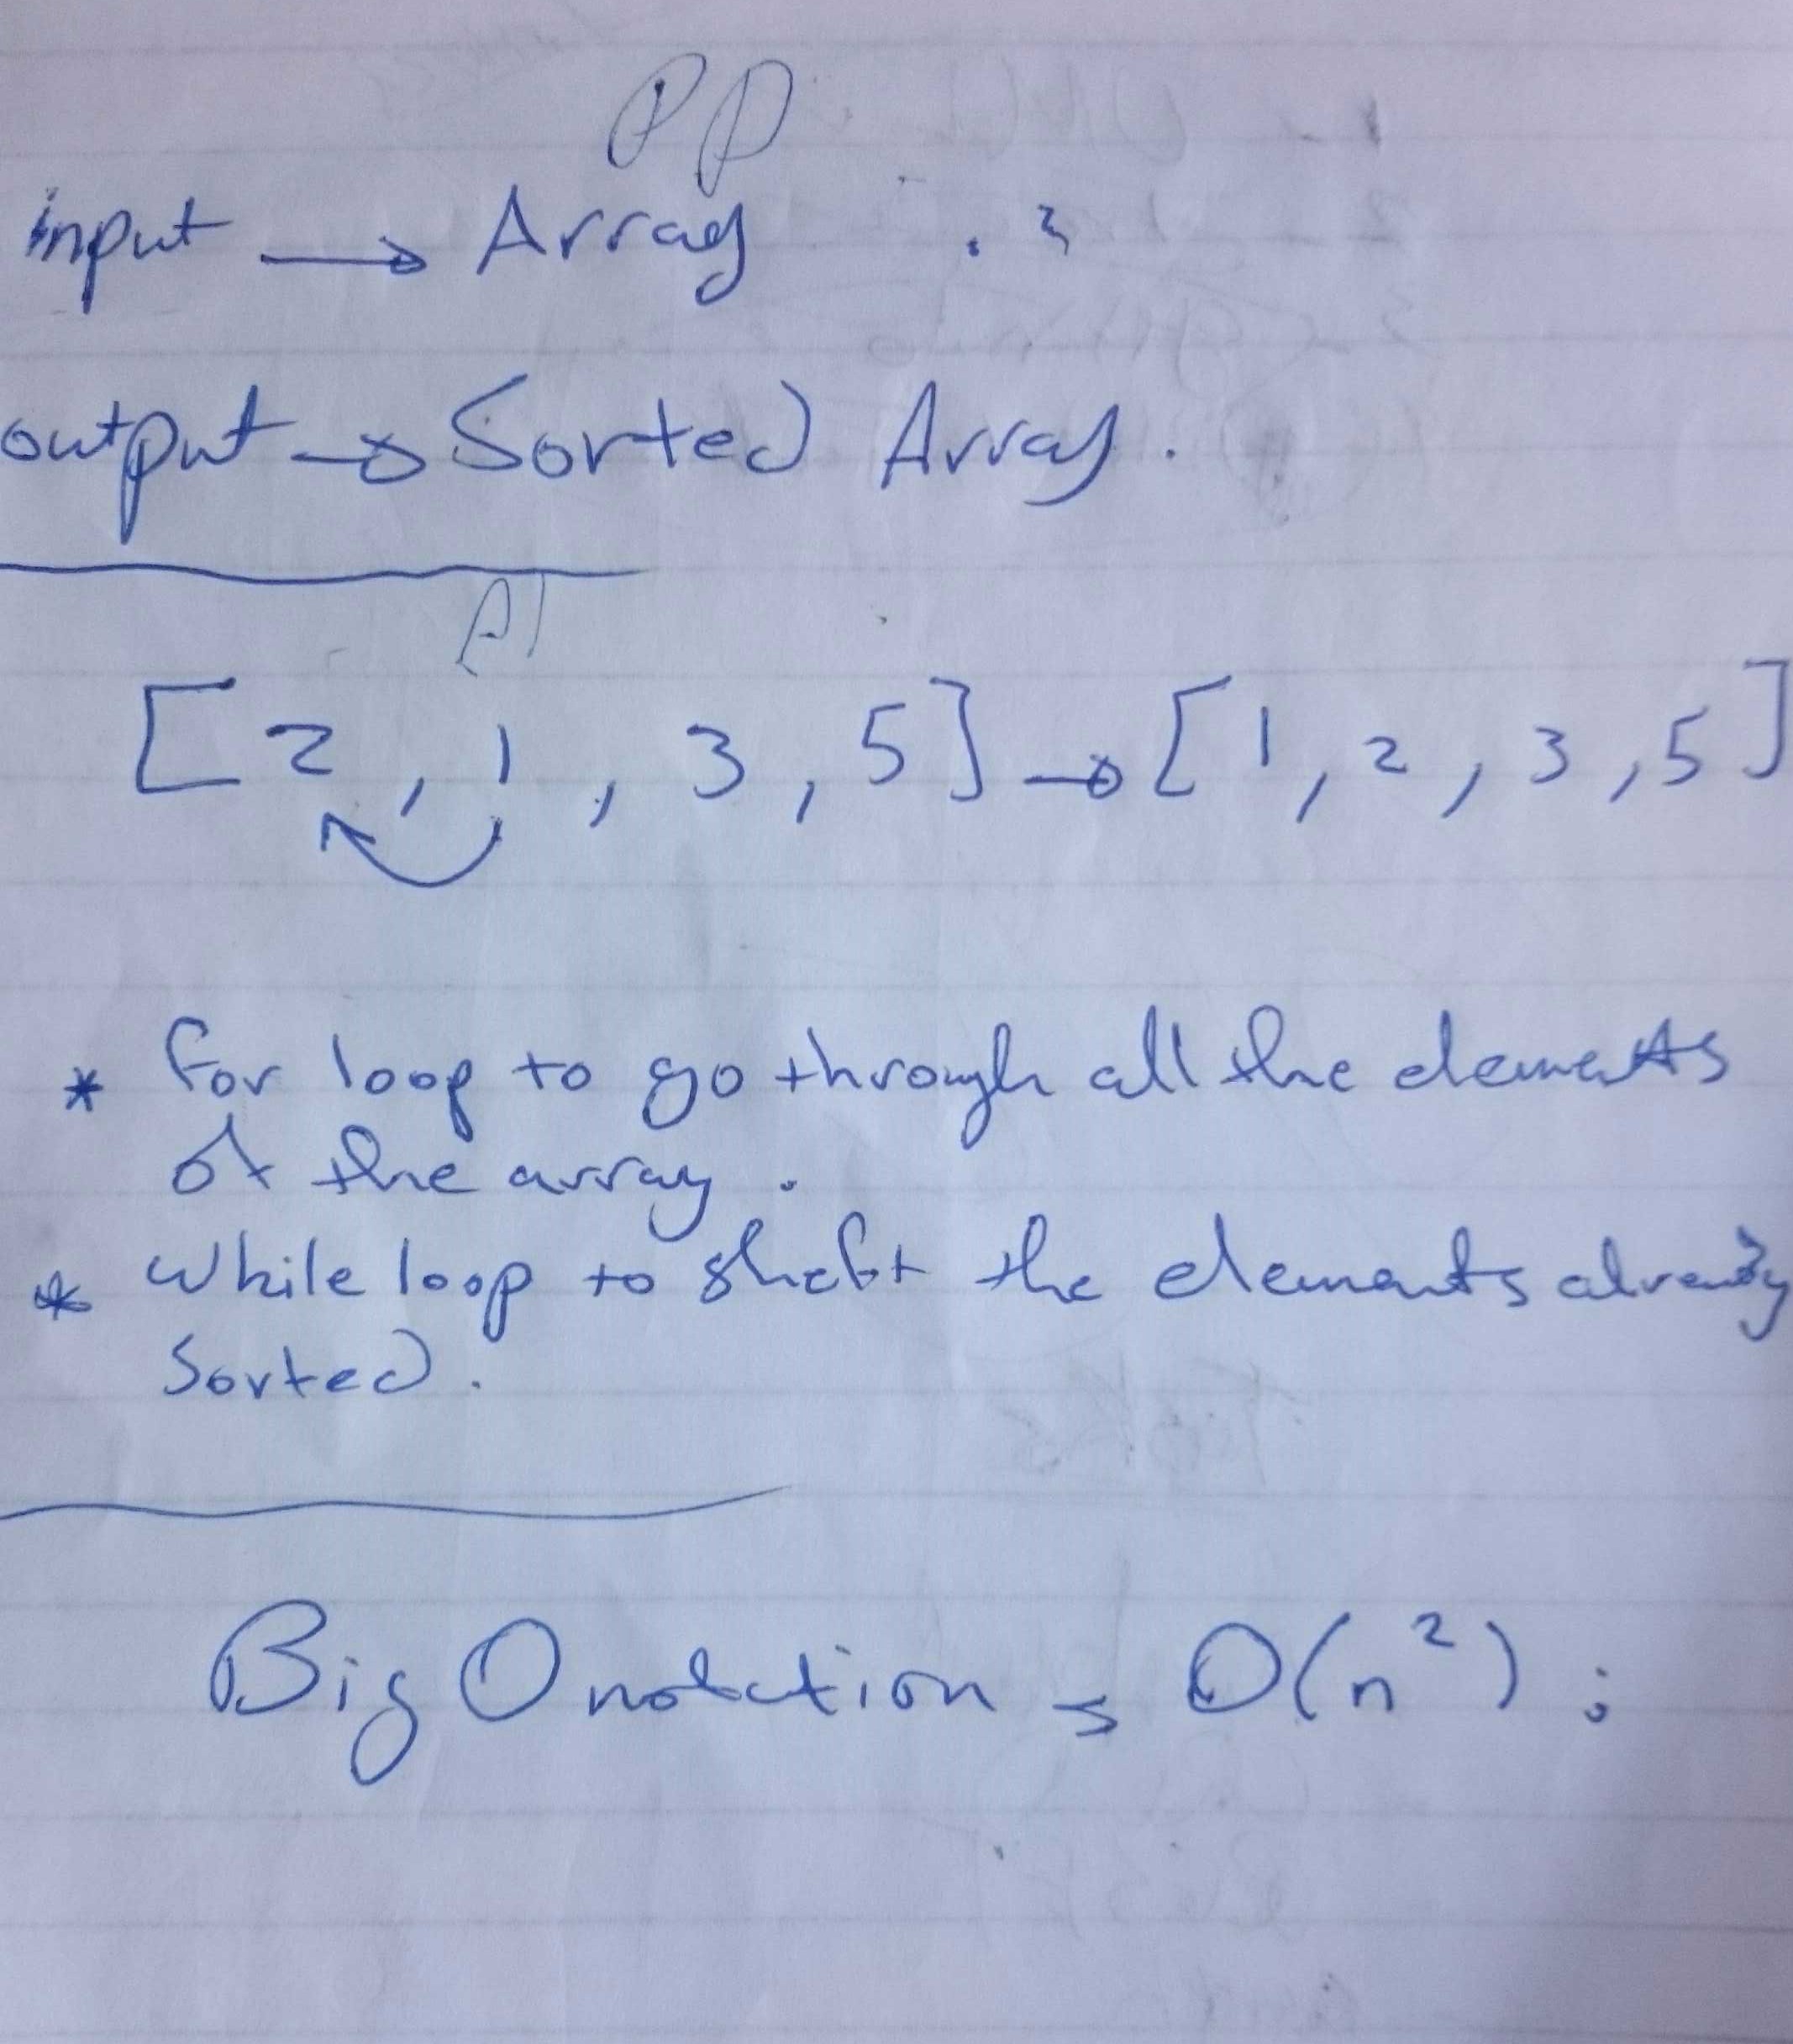 input → Array
output → Sorted Array.
[2, 1, 3, 5] → [1, 2, 3, 5]
* for loop to go through all the elements
of the array.
* while loop to sheft the elements already
Sorted.
Big O notation = O(n²);